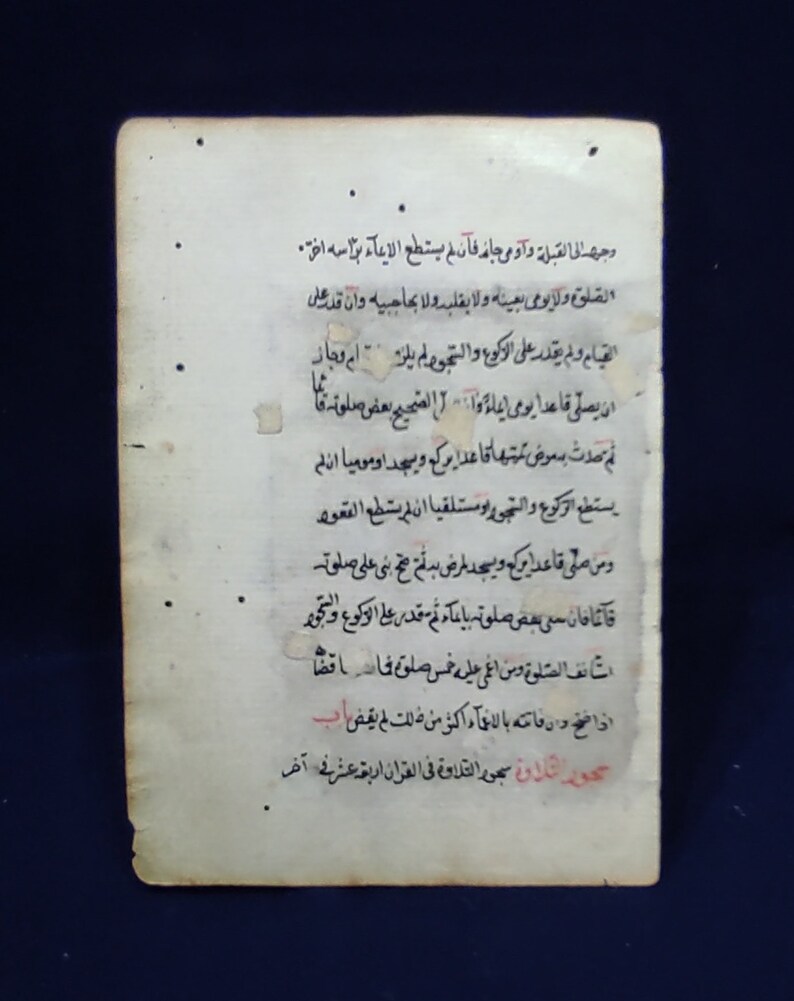 وجهه الى القبلة واومى جاز فان لم يستطع الايماء براسه اخر
الصلوة ولا يومى بعينه ولا بقلبه ولا بحاجبيه وان قدر على
القيام ولم يقدر على الركوع والسجود لم يلز ام وجاز
ان يصلى قاعدا يومى ايماء وان الصحيح بعض صلوته قائما
ثم حدث به مرض تممتها قاعدا يركع ويسجد او موميا ان لم
يستطع الركوع والسجود او مستلقيا ان لم يستطع القعود
ومن صلى قاعدا يركع ويسجد لمرض به ثم صح بنى على صلوته
قائما فان صلى بعض صلوته بايماء ثم قدر على الركوع والسجود
استانف الصلوة ومن اغمى عليه خمس صلوة فما قضاها
اذا صح وان فاتته بالاغماء اكثر من ذلك لم يقض باب
سجود التلاوة سجود التلاوة فى القران اربعة عشر فى آخر